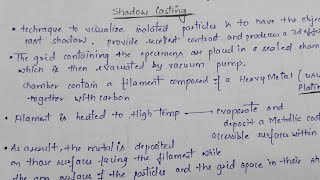 Shadow Casting
• technique to visualize isolated particles is to have the obje
cast shadow. provide excellent contrast and produces a 3d effe
• The grid containing the specimens are placed in a sealed cham
which is then evacuated by vacuum pump.
chamber contain a filament composed of a Heavy Metal (usu
together with carbon Platin
• Filament is heated to High Temp → evaporate and
deposit a Metallic coati
accessible surfaces within
• As a result, the metal is deposited
on those surfaces facing the filament while
the surfaces of the particles and the grid space in their sh